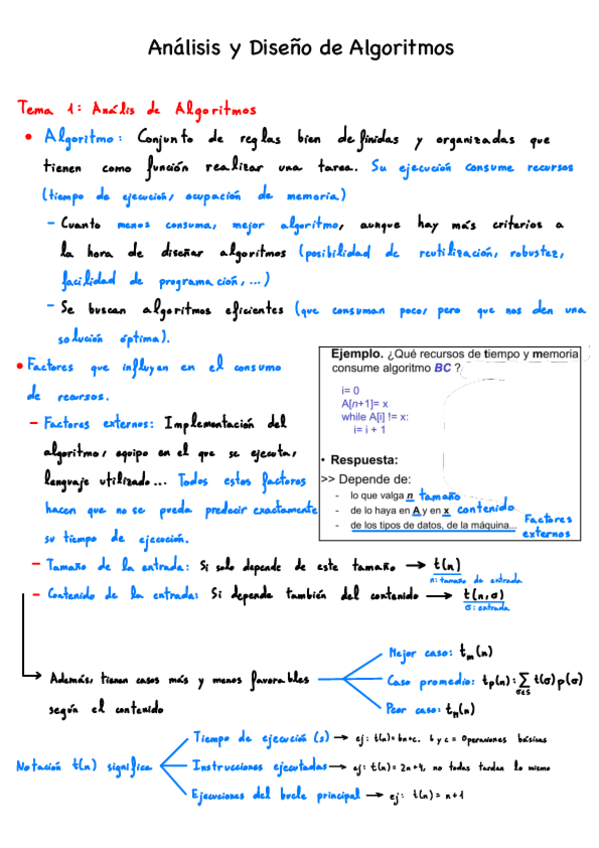 Análisis y Diseño de Algoritmos
Tema 1: Anális de Algoritmos
• Algoritmo: Conjunto de reglas bien definidas y organizadas que
tienen como función realizar una tarea. Su ejecución consume recursos
(tiempo de ejecución, ocupación de memoria)
- Cuanto menos consuma, mejor algoritmo, aunque hay más criterios a
la hora de diseñar algoritmos (posibilidad de reutilización, robustez,
facilidad de programación, ...)
- Se buscan algoritmos eficientes (que consuman poco, pero que nos den una
solución óptima).
• Factores que influyen en el consumo
de recursos.
- Factores externos: Implementación del
algoritmo, equipo en el que se ejecuta,
lenguaje utilizado... Todos estos factores
hacen que no se pueda predecir exactamente
su tiempo de ejecución.
Ejemplo. ¿Qué recursos de tiempo y memoria
consume algoritmo BC ?
i= 0
A[n+1]= x
while A[i] != x:
i= i + 1
• Respuesta:
>> Depende de:
- lo que valga n tamaño
- de lo haya en A y en x contenido
- de los tipos de datos, de la máquina... Factores
externos
- Tamaño de la entrada: Si solo depende de este tamaño → t(n)
n: tamaño de entrada
- Contenido de la entrada: Si depende también del contenido → t(n,σ)
σ: entrada
Además, tienen casos más y menos favorables
según el contenido
Mejor caso: tm(n)
Caso promedio: tp(n): Σ t(σ) p(σ)
σ∈S
Peor caso: tM(n)
Notación t(n) significa
Tiempo de ejecución (s) → ej: t(n)=bn+c. b y c = Operaciones básicas
Instrucciones ejecutadas → ej: t(n) = 2n+4, no todas tardan lo mismo
Ejecuciones del bucle principal → ej: t(n) = n+1